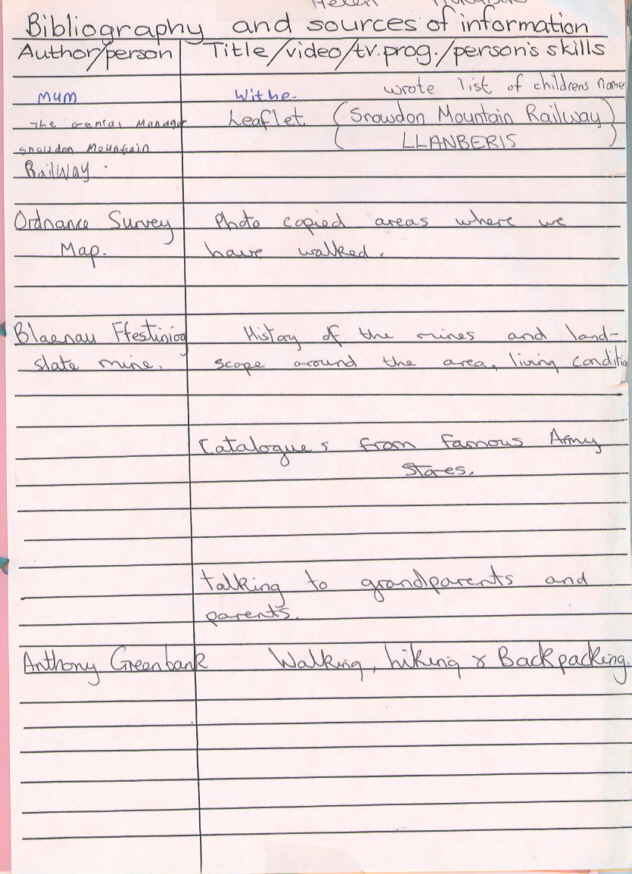 Helen
Bibliography and sources of information
Author/person Title/video/tv.prog./person's skills
mum withe. wrote list of childrens name
The General Manager Leaflet (Snowdon Mountain Railway)
Snowdon Mountain LLANBERIS
Railway.
Ordnance Survey Photo copied areas where we
Map. have walked.
Blaenau Ffestiniog History of the mines and land-
slate mine. scope around the area, living conditio
Catalogue s from Famous Army
Stores.
talking to grandparents and
parents.
Anthony Greenbank Walking, hiking & Backpacking.